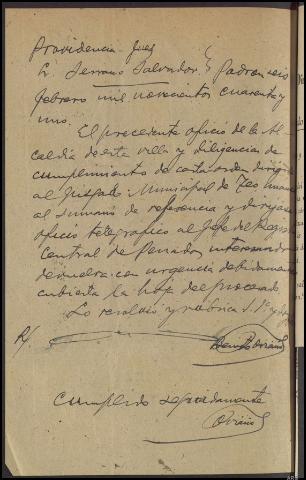 Providencia Juez
Sr. Serrano Salvador } Padron seis
febrero mil novecientos cuarenta y
uno.
El precedente oficio de la Al-
caldia de esta villa y diligencias de
cumplimiento de carta orden dirigida
al Juzgado Municipal de Teo, unanse
al sumario de referencia y dirijase
oficio telegrafico al Jefe del Registro
Central de Penados interesando
devuelva con urgencia debidamente
cubierta la hoja del procesado
Lo resolvió y rubrica S. Sª y doy
R/
Cumplido seguidamente